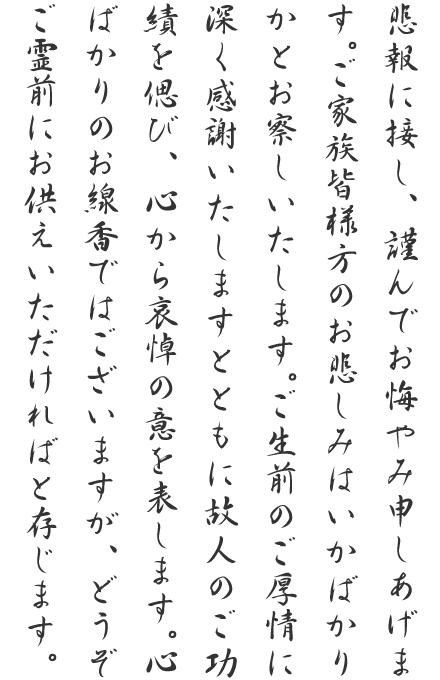 悲報に接し、謹んでお悔やみ申しあげま
す。ご家族皆様方のお悲しみはいかばかり
かとお察しいたします。ご生前のご厚情に
深く感謝いたしますとともに故人のご功
績を偲び、心から哀悼の意を表します。心
ばかりのお線香ではございますが、どうぞ
ご霊前にお供えいただければと存じます。